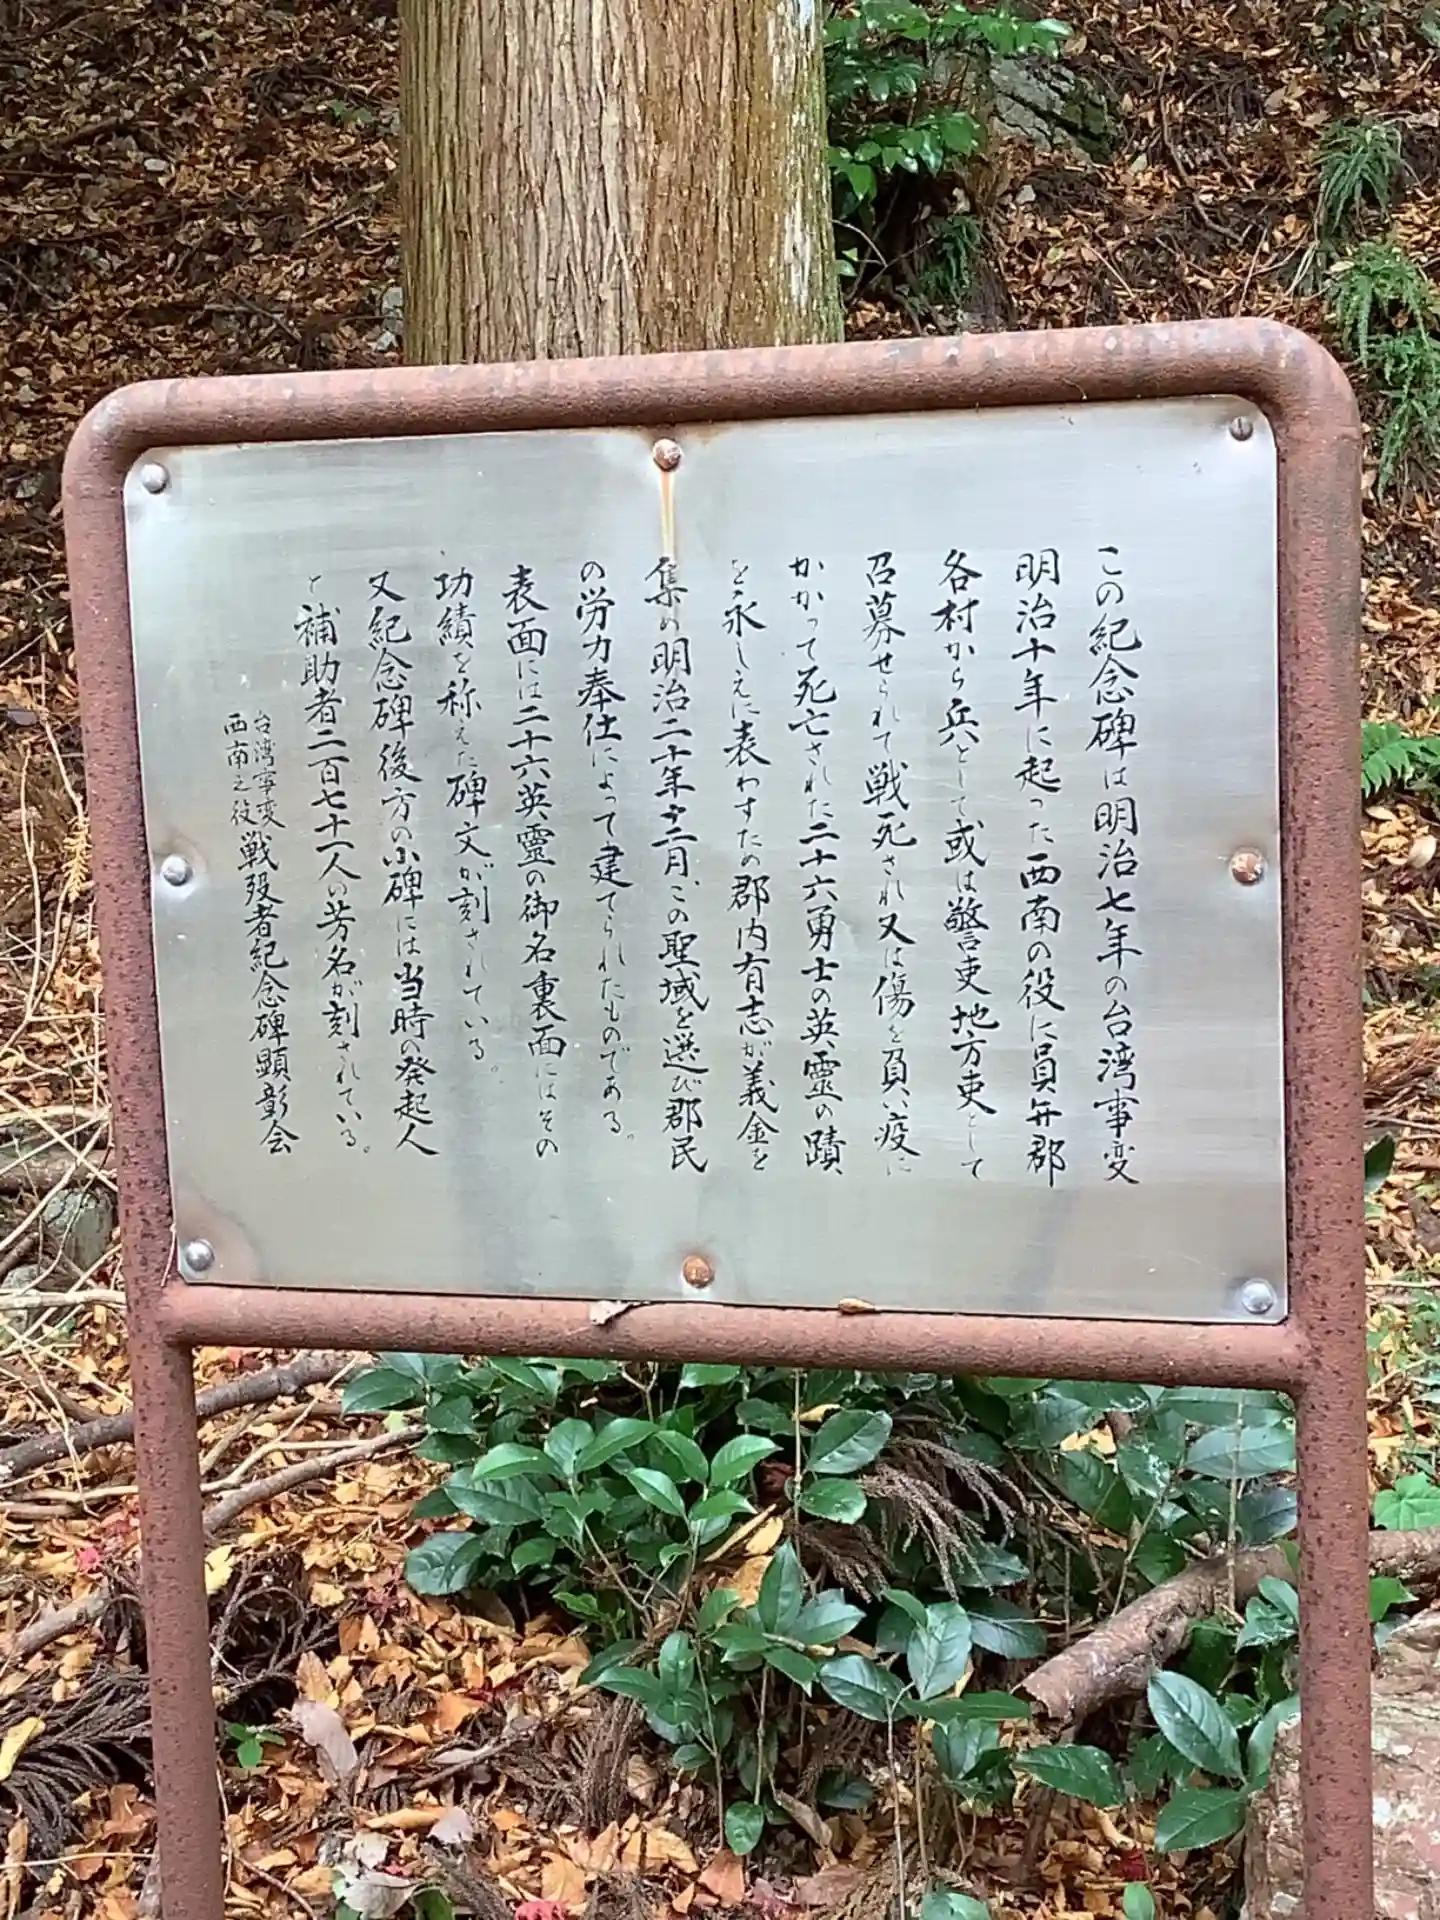 この紀念碑は明治七年の台湾事変
明治十年に起った西南の役に員弁郡
各村から兵として或は警吏地方吏として
召募せられて戦死され又は傷を負い疫に
かかって死亡された二十六勇士の英霊の蹟
を永しえに表わすため郡内有志が義金を
集め明治二十年十二月この聖域を選び郡民
の労力奉仕によって建てられたものである。
表面には二十六英霊の御名裏面にはその
功績を称えた碑文が刻されている。
又紀念碑後方の小碑には当時の発起人
と補助者二百七十一人の芳名が刻されている。
台湾事変
西南之役
戦歿者紀念碑顕彰会